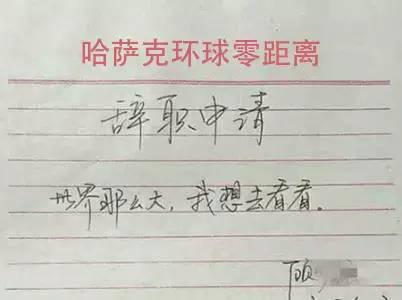 哈萨克环球零距离
辞职申请
世界那么大，我想去看看。
顾